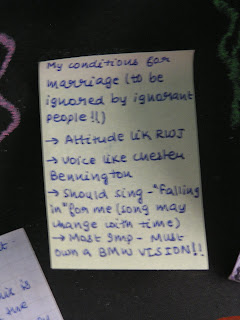 My conditions for
marriage (to be
ignored by ignorant
people!!)
→ Attitude lik RWJ
→ Voice like Chester
Bennington
→ Should sing - "Falling
in" for me (song may
change with time)
→ Most Imp - Must
own a BMW VISION!!
is
the